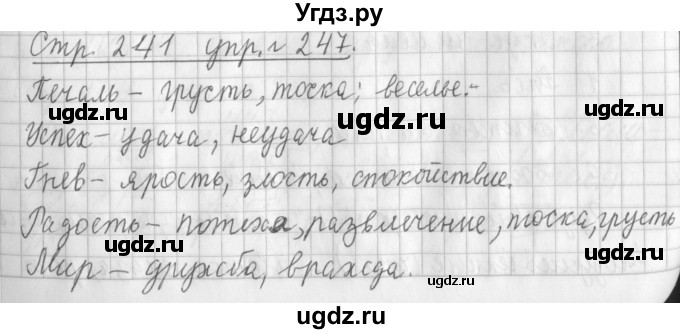 Угдз.ру
Стр. 241 упр. 247.
Печаль – грусть, тоска; веселье.-
ugdz.ru ugdz.ru
Успех – удача, неудача
ugdz.ru
Гнев – ярость, злость, спокойствие.
ugdz.ru
Радость – потеха, развлечение, тоска, грусть
ugdz.ru ugdz.ru
Мир – дружба, вражда.
ugdz.ru ugdz.ru